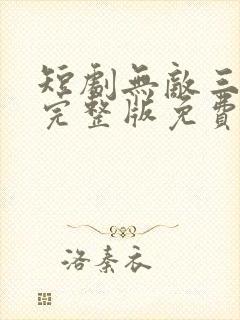 短劇無敵三
完整版免費
洛秦衣